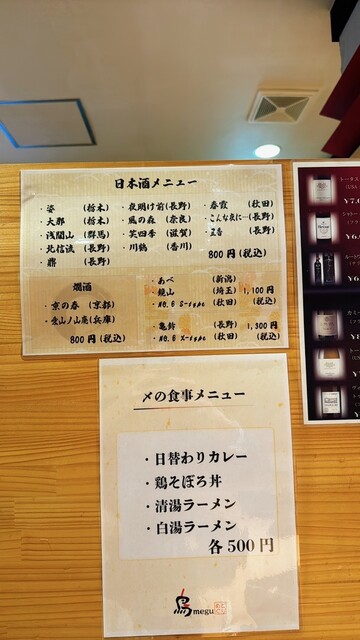 日本酒メニュー
・姿 (栃木)
・大那 (栃木)
・浅間山 (群馬)
・北信流 (長野)
・鼎 (長野)
・夜明け前 (長野)
・風の森 (奈良)
・笑四季 (滋賀)
・川鶴 (香川)
・春霞 (秋田)
・こんな夜に… (長野)
(長野)
800円(税込)
燗酒
・京の春 (京都)
・愛山ノ山廃 (兵庫)
800円 (税込)
・あべ (新潟)
・鏡山 (埼玉) 1,100円
・No.6 S-type (秋田) (税込)
・亀齢 (長野) 1,300円
・No.6 X-type (秋田) (税込)
〆の食事メニュー
・日替わりカレー
・鶏そぼろ丼
・清湯ラーメン
・白湯ラーメン
各500円
鳥megu